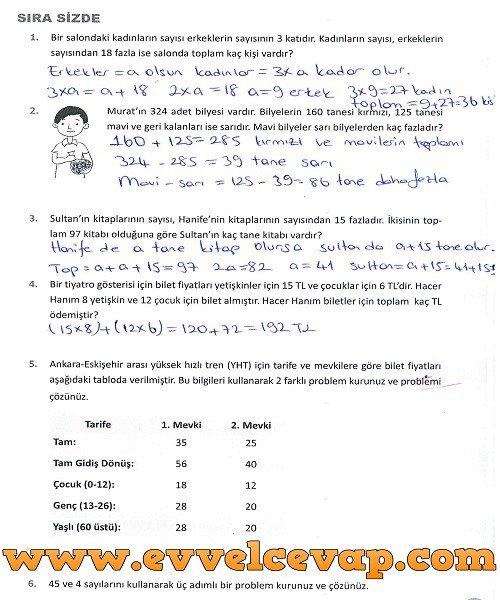 SIRA SİZDE
1. Bir salondaki kadınların sayısı erkeklerin sayısının 3 katıdır. Kadınların sayısı, erkeklerin
sayısından 18 fazla ise salonda toplam kaç kişi vardır?
Erkekler = a olsun kadınlar = 3xa kadar olur.
3xa = a + 18 2xa = 18 a = 9 erkek 3x9 = 27 kadın
toplam = 9+27=36 kiş
2. Murat'ın 324 adet bilyesi vardır. Bilyelerin 160 tanesi kırmızı, 125 tanesi
mavi ve geri kalanları ise sarıdır. Mavi bilyeler sarı bilyelerden kaç fazladır?
160 + 125 = 285 kırmızı ve mavilerin toplamı
324 - 285 = 39 tane sarı
Mavi - sarı = 125 - 39 = 86 tane daha fazla
3. Sultan'ın kitaplarının sayısı, Hanife'nin kitaplarının sayısından 15 fazladır. İkisinin top-
lam 97 kitabı olduğuna göre Sultan'ın kaç tane kitabı vardır?
Hanife de a tane kitap olursa sultanda a+15 tane olur.
Top = a + a + 15 = 97 2a = 82 a = 41 sultan = a+15 = 41+15
4. Bir tiyatro gösterisi için bilet fiyatları yetişkinler için 15 TL ve çocuklar için 6 TL'dir. Hacer
Hanım 8 yetişkin ve 12 çocuk için bilet almıştır. Hacer Hanım biletler için toplam kaç TL
ödemiştir?
(15x8) + (12x6) = 120 + 72 = 192 TL
5. Ankara-Eskişehir arası yüksek hızlı tren (YHT) için tarife ve mevkilere göre bilet fiyatları
aşağıdaki tabloda verilmiştir. Bu bilgileri kullanarak 2 farklı problem kurunuz ve problemi
çözünüz.
Tarife 1. Mevki 2. Mevki
Tam: 35 25
Tam Gidiş Dönüş: 56 40
Çocuk (0-12): 18 12
Genç (13-26): 28 20
Yaşlı (60 üstü): 28 20
www.evvelcevap.com
6. 45 ve 4 sayılarını kullanarak üç adımlı bir problem kurunuz ve çözünüz.